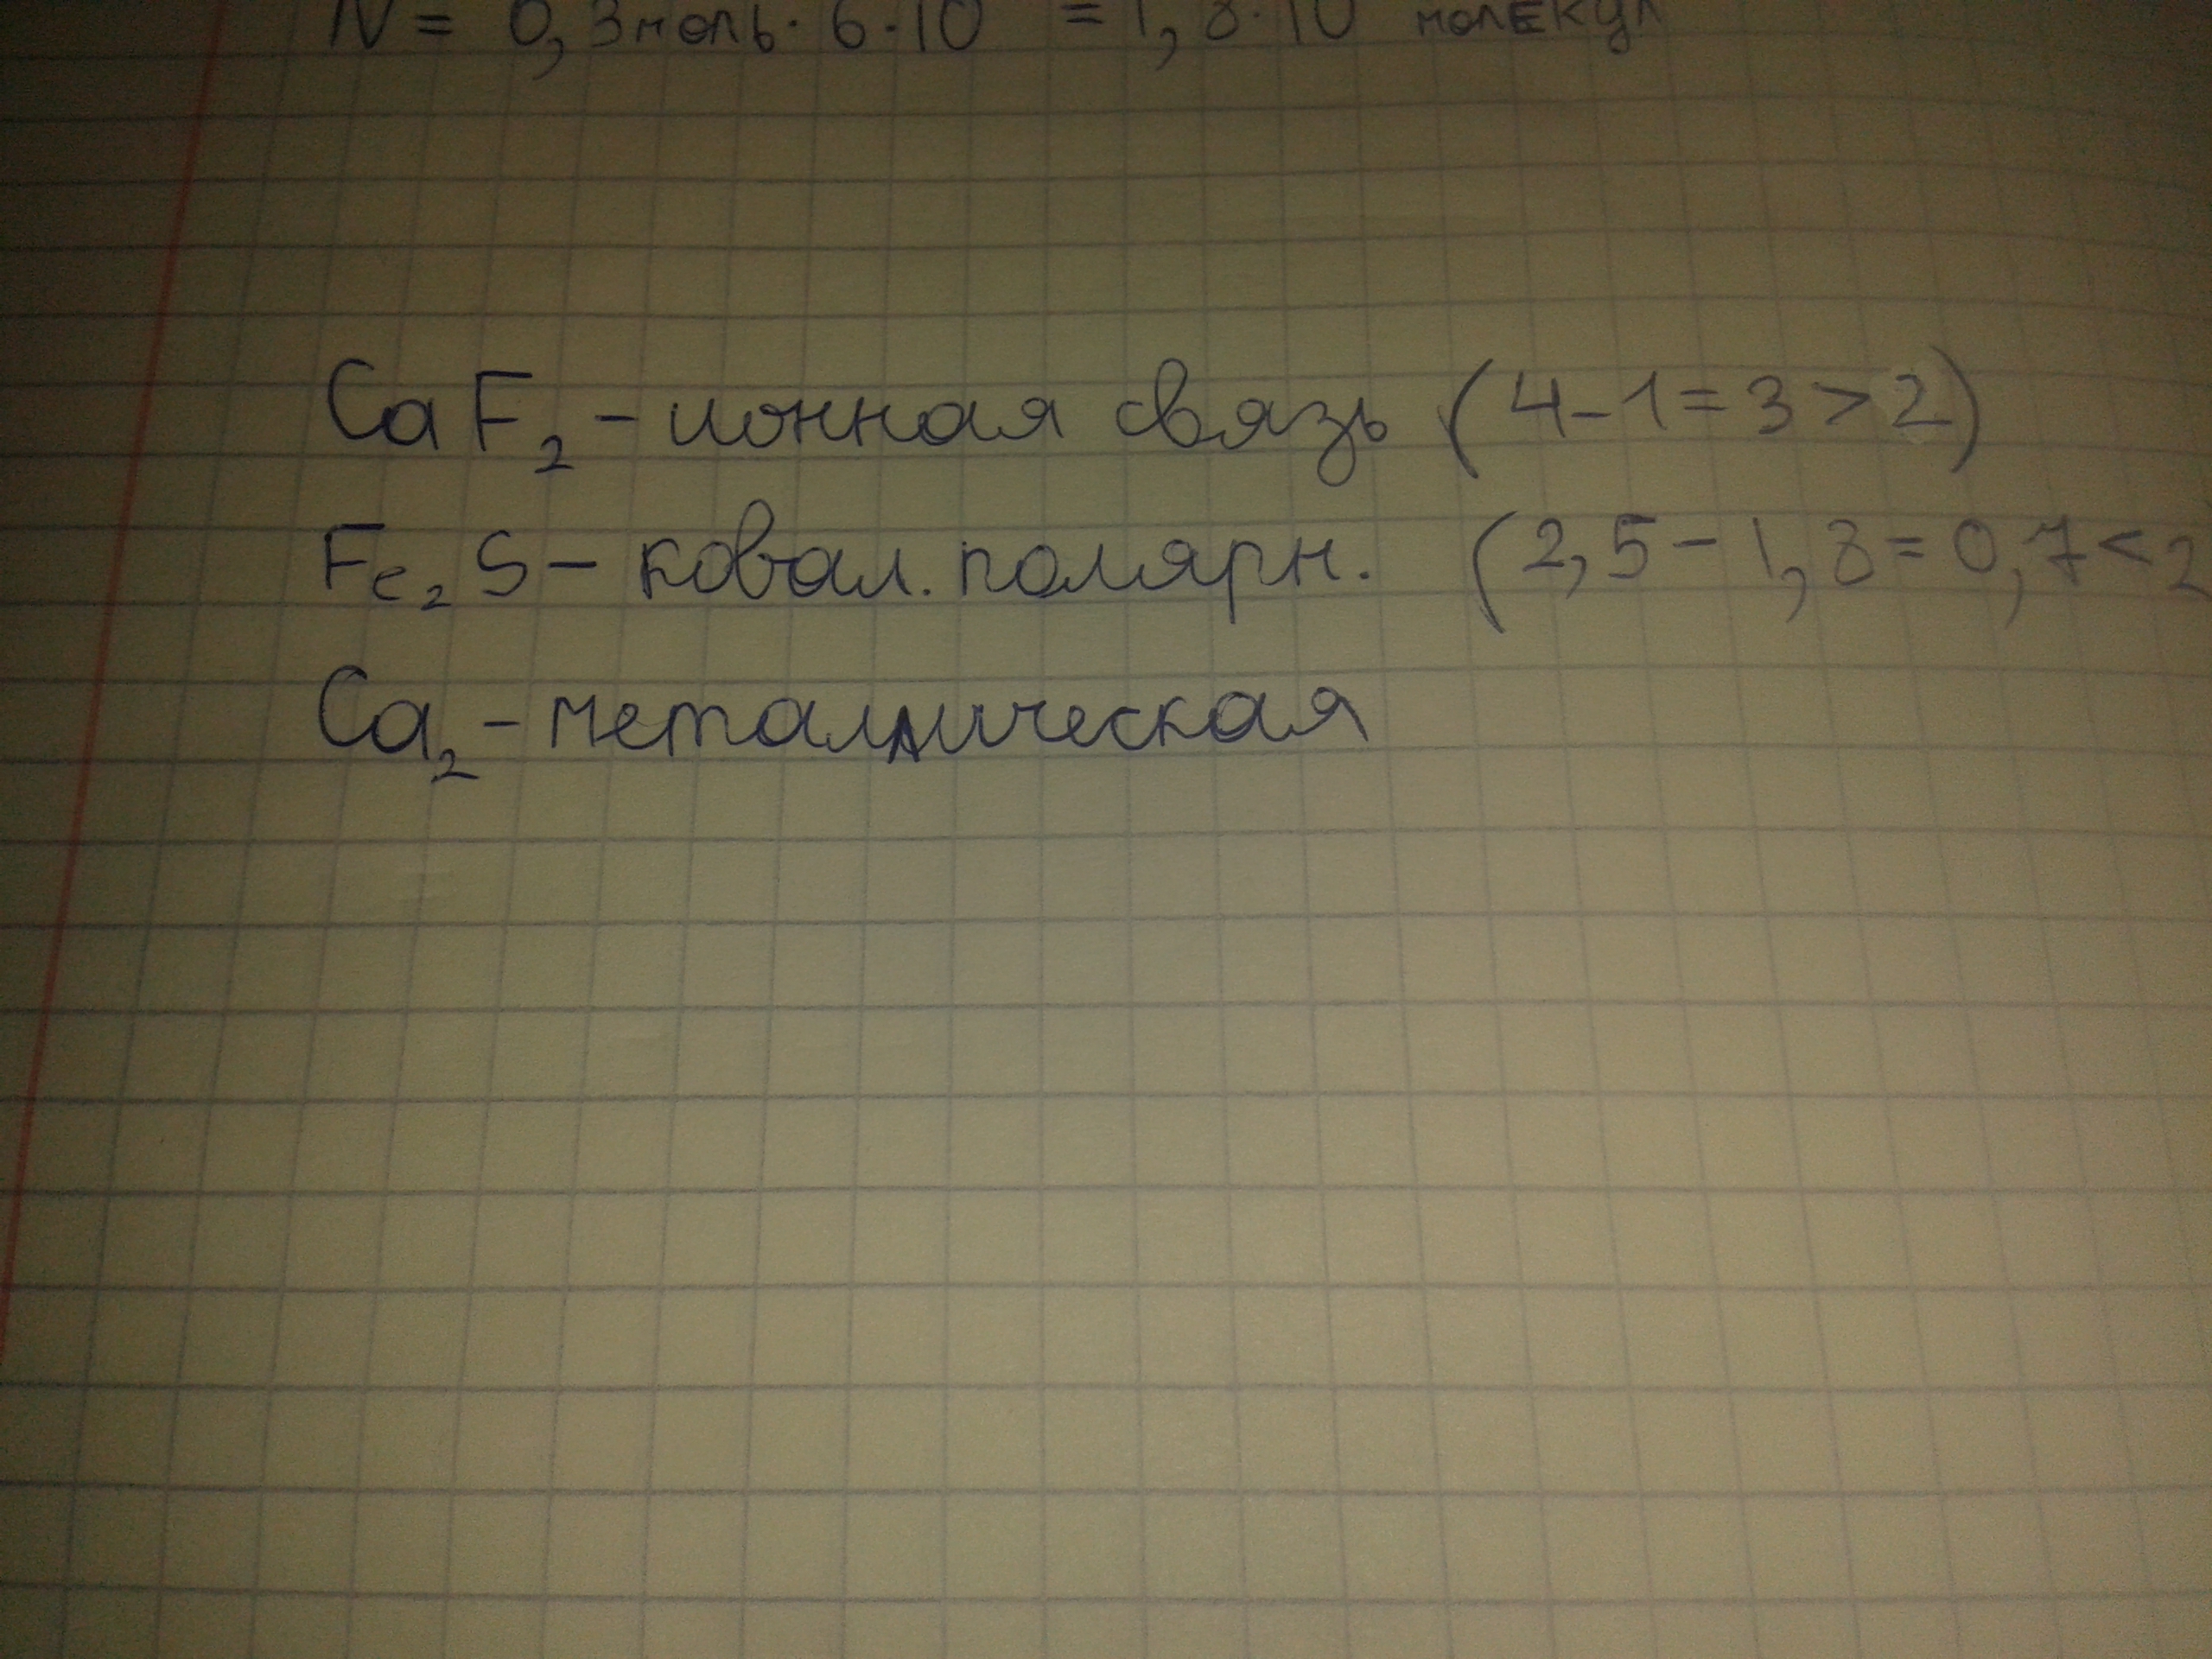 N = 0,3 моль · 6 · 10 = 1,8 · 10 молекул
CaF₂ – ионная связь (4 – 1 = 3 > 2)
Fe₂S – ковал. полярн. (2,5 – 1,8 = 0,7 < 2
Ca₂ – металлическая